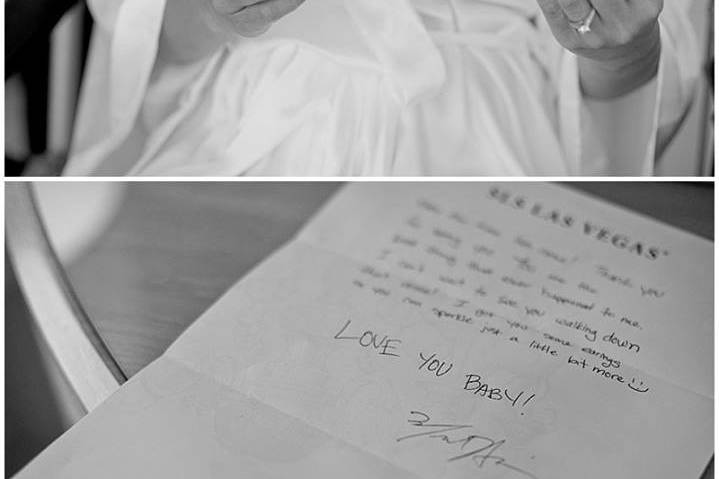 SLS LAS VEGAS
Thank you
for being you. You are the
best thing that ever happened to me.
I can't wait to see you walking down
that aisle! I got you some earrings
so you can sparkle just a little bit more
LOVE YOU BABY!